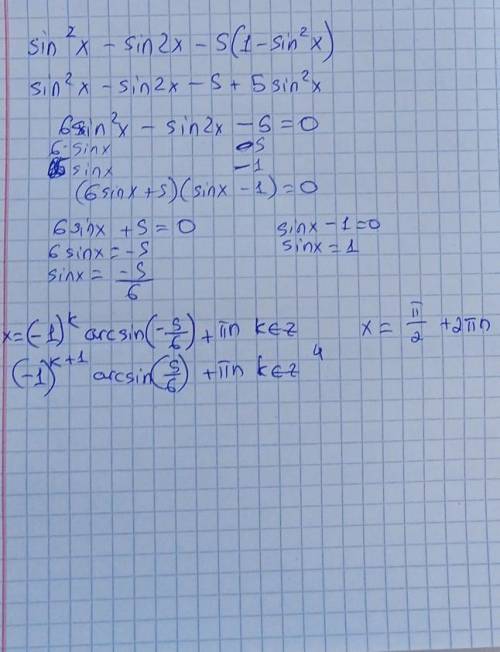 sin²x - sin2x - 5(1-sin²x)
sin²x - sin2x - 5 + 5sin²x
6sin²x - sin2x - 5 = 0
6·sinx -5
sinx -1
(6sinx+5)(sinx-1)=0
6sinx + 5 = 0 sinx - 1 = 0
6sinx = -5 sinx = 1
sinx = -5/6
x=(-1)^k arcsin(-5/6) + πn k∈z x = π/2 + 2πn
(-1)^k+1 arcsin(5/6) + πn k∈z 4